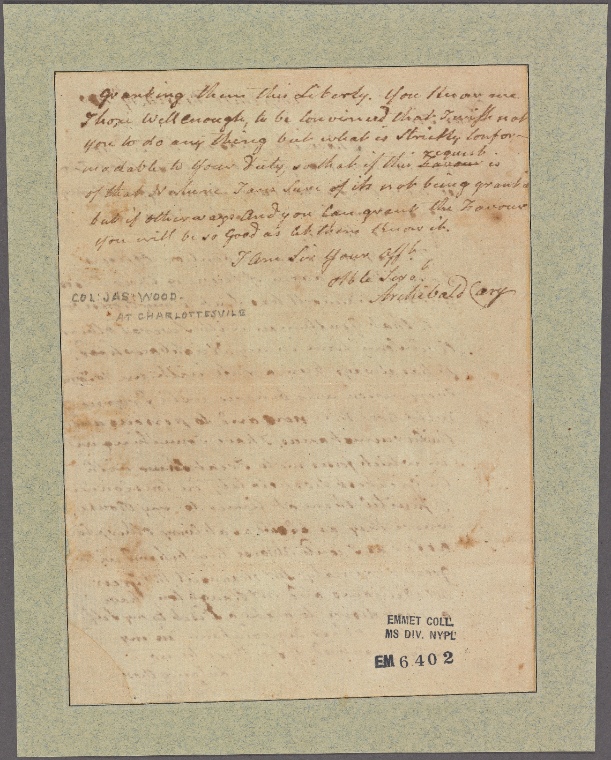 granting them this Liberty. You Know me
I hope Well enough, to be Convinced that I wish not
you to do any thing but what is Strictly Confor-
mable to Your Duty, so that if this Request
Favour is
of that Nature I am Sure of its not being grant
but if otherways and you Can grant the Favour
You will be so Good as let them Know it.
I Am Sir Your Afft
Hble Serv.t
Archibald Cary
COL. JAS WOOD.
AT CHARLOTTESVILE
EMMET COLL.
MS DIV. NYPL
EM 6402